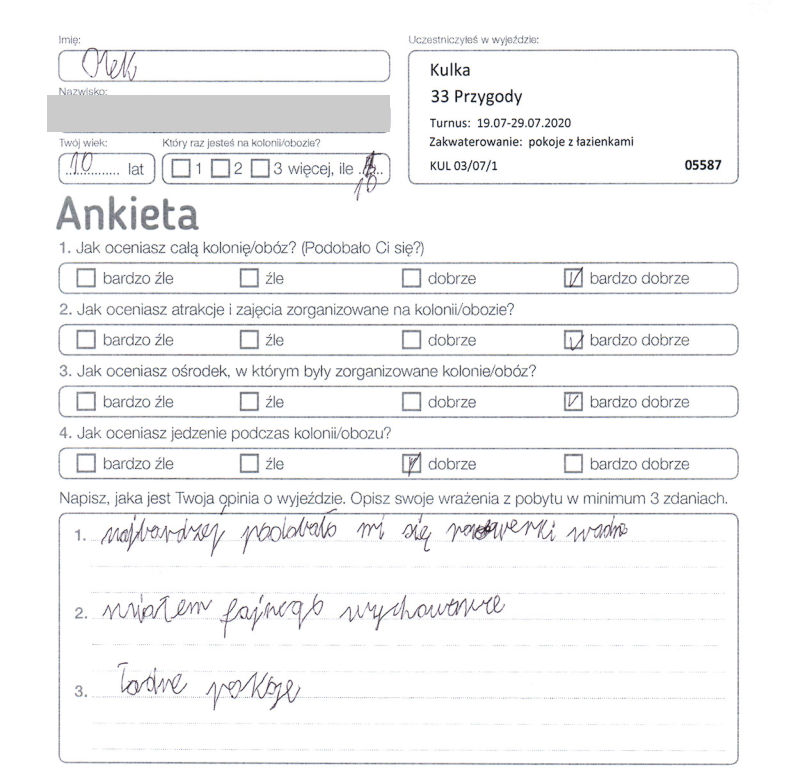 Imię:
Olek
Nazwisko:
Twój wiek:
10 lat
Który raz jesteś na kolonii/obozie?
1 2 3 więcej, ile 10
Uczestniczyłeś w wyjeździe:
Kulka
33 Przygody
Turnus: 19.07-29.07.2020
Zakwaterowanie: pokoje z łazienkami
KUL 03/07/1 05587
Ankieta
1. Jak oceniasz całą kolonię/obóz? (Podobało Ci się?)
bardzo źle źle dobrze bardzo dobrze
2. Jak oceniasz atrakcje i zajęcia zorganizowane na kolonii/obozie?
bardzo źle źle dobrze bardzo dobrze
3. Jak oceniasz ośrodek, w którym były zorganizowane kolonie/obóz?
bardzo źle źle dobrze bardzo dobrze
4. Jak oceniasz jedzenie podczas kolonii/obozu?
bardzo źle źle dobrze bardzo dobrze
Napisz, jaka jest Twoja opinia o wyjeździe. Opisz swoje wrażenia z pobytu w minimum 3 zdaniach.
1. najbardzej podobało mi się rowerki wodne
2. miałem fajnego wychowawce
3. ładne pokoje